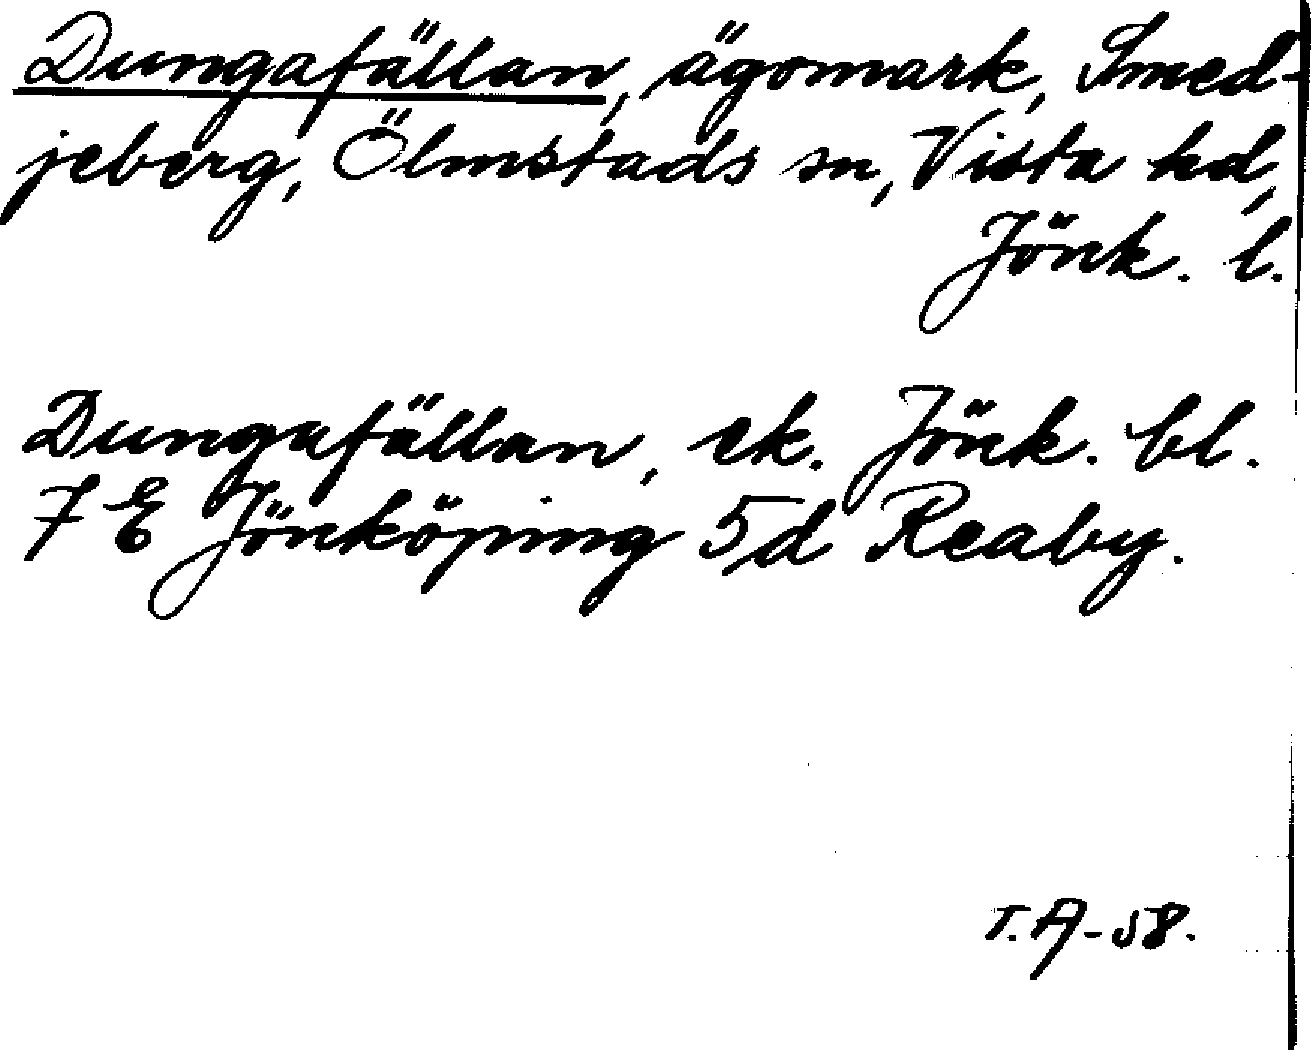 Dungafällan, ägomark, Smed-
jeberg, Ölmstads sn, Vista hd,
Jönk. l.
Dungafällan, ek. Jönk. bl.
7 E Jönköping 5d Reaby.
T. A-58.